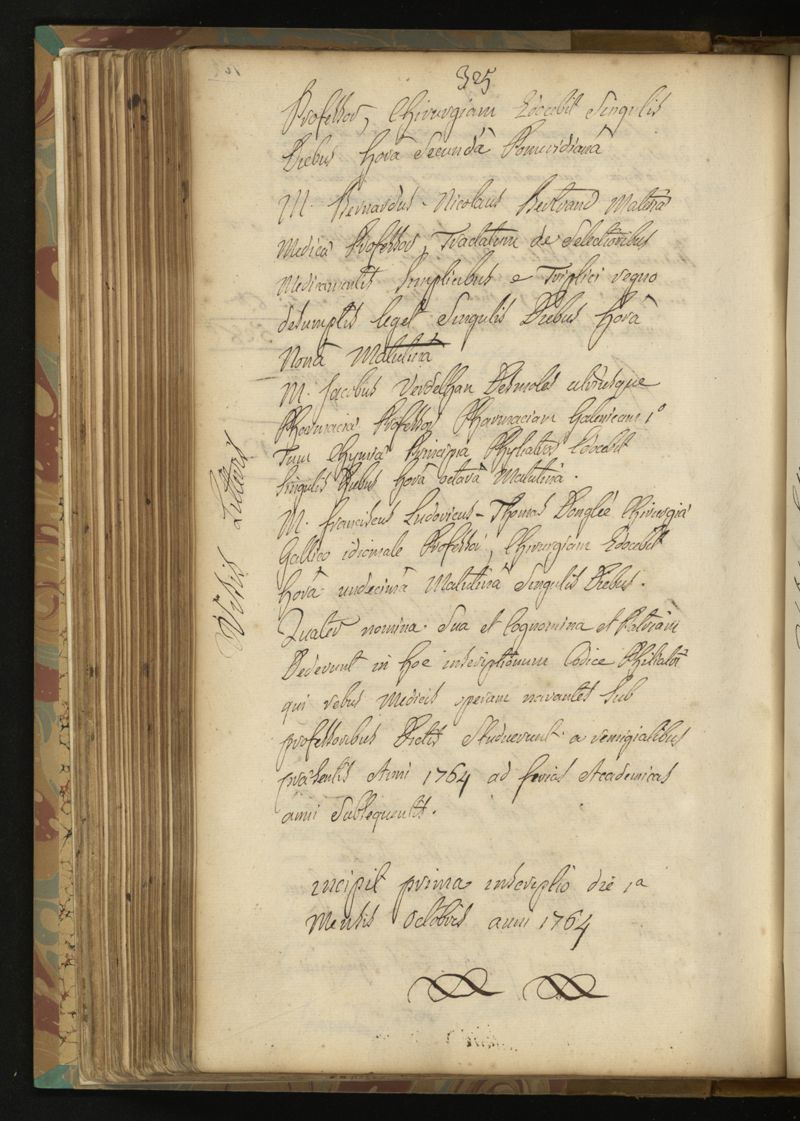 325
Professor, Chirurgiam Edocebit Singulis
Diebus horâ Secundâ Pomeridianâ
M. Bernardus-Nicolaus Bertrand Materiæ
Medicæ Professor, Tractatum de Selectioribus
Medicamentis Simplicibus e Triplici regno
desumptis leget Singulis Diebus horâ
Nonâ Matutinâ
M. Jacobus Verdelhan Desmoles utriusque
Pharmaciæ Professor Pharmaciam Galenicam 1º
Tum Chymiæ Principia Physicalia Edocebit
Singulis Diebus horâ octavâ Matutinâ.
M. franciscus Ludovicus-Thomas Donglée Chirurgiæ
Gallico idiomate Professor, Chirurgiam Edocebit
horâ undecimâ Matutinâ Singulis Diebus.
Quater nomina Sua et Cognomina et Patriam
Dederunt in hoc inscriptionum Codice Philiatri
qui rebus Medicis operam navantes Sub
professoribus Dictis Studuerunt a remigialibus
præsentis Anni 1764 ad ferias Academicas
anni Subsequentis.
incipit prima inscriptio die 1a
Mensis Octobris anni 1764
Desis Litteras